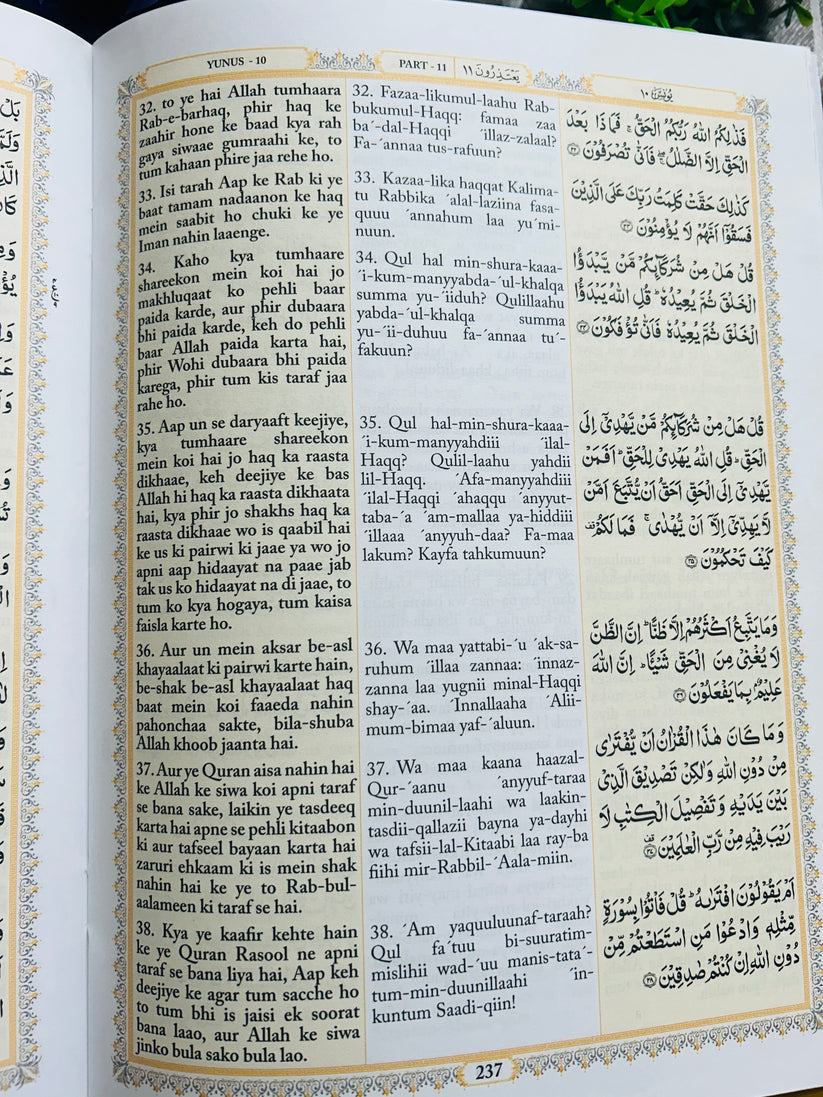 YUNUS - 10
PART - 11
يَعْتَذِرُونَ ١١
يُونُس ١٠
32. to ye hai Allah tumhaara
Rab-e-barhaq, phir haq ke
zaahir hone ke baad kya rah
gaya siwaae gumraahi ke, to
tum kahaan phire jaa rehe ho.
33. Isi tarah Aap ke Rab ki ye
baat tamam nadaanon ke haq
mein saabit ho chuki ke ye
Iman nahin laaenge.
34. Kaho kya tumhaare
shareekon mein koi hai jo
makhluqaat ko pehli baar
paida karde, aur phir dubaara
bhi paida karde, keh do pehli
baar Allah paida karta hai,
phir Wohi dubaara bhi paida
karega, phir tum kis taraf jaa
rahe ho.
35. Aap un se daryaaft keejiye,
kya tumhaare shareekon
mein koi hai jo haq ka raasta
dikhaae, keh deejiye ke bas
Allah hi haq ka raasta dikhaata
hai, kya phir jo shakhs haq ka
raasta dikhaae wo is qaabil hai
ke us ki pairwi ki jaae ya wo jo
apni aap hidaayat na paae jab
tak us ko hidaayat na di jaae, to
tum ko kya hogaya, tum kaisa
faisla karte ho.
36. Aur un mein aksar be-asl
khayaalaat ki pairwi karte hain,
be-shak be-asl khayaalaat haq
baat mein koi faaeda nahin
pahonchaa sakte, bila-shuba
Allah khoob jaanta hai.
37. Aur ye Quran aisa nahin hai
ke Allah ke siwa koi apni taraf
se bana sake, laikin ye tasdeeq
karta hai apne se pehli kitaabon
ki aur tafseel bayaan karta hai
zaruri ehkaam ki is mein shak
nahin hai ke ye to Rab-bul-
aalameen ki taraf se hai.
38. Kya ye kaafir kehte hain
ke ye Quran Rasool ne apni
taraf se bana liya hai, Aap keh
deejiye ke agar tum sacche ho
to tum bhi is jaisi ek soorat
bana laao, aur Allah ke siwa
jinko bula sako bula lao.
32. Fazaa-likumul-laahu Rab-
bukumul-Haqq: famaa zaa
ba´-dal-Haqqi ´illaz-zalaal?
Fa-´annaa tus-rafuun?
33. Kazaa-lika haqqat Kalima-
tu Rabbika ´alal-laziina fasa-
quuu ´annahum laa yu´mi-
nuun.
34. Qul hal min-shura-kaaa-
´i-kum-manyyabda-´ul-khalqa
summa yu-´iiduh? Qulillaahu
yabda-´ul-khalqa summa
yu-´ii-duhuu fa-´annaa tu´-
fakuun?
35. Qul hal-min-shura-kaaa-
´i-kum-manyyahdiii ´ilal-
Haqq? Qulil-laahu yahdii
lil-Haqq. ´Afa-manyyahdiii
´ilal-Haqqi ´ahaqqu ´anyyut-
taba-´a ´am-mallaa ya-hiddiii
´illaaa ´anyyuh-daa? Fa-maa
lakum? Kayfa tahkumuun?
36. Wa maa yattabi-´u ´ak-sa-
ruhum ´illaa zannaa: ´innaz-
zanna laa yugnii minal-Haqqi
shay-´aa. ´Innallaaha ´Alii-
mum-bimaa yaf-´aluun.
37. Wa maa kaana haazal-
Qur-´aanu ´anyyuf-taraa
min-duunil-laahi wa laakin-
tasdii-qallazii bayna ya-dayhi
wa tafsii-lal-Kitaabi laa ray-ba
fiihi mir-Rabbil-´Aala-miin.
38. ´Am yaquuluunaf-taraah?
Qul fa´tuu bi-suuratim-
mislihii wad-´uu manis-tata´-
tum-min-duunillaahi ´in-
kuntum Saadi-qiin!
فَذٰلِكُمُ اللّٰهُ رَبُّكُمُ الْحَقُّ ۚ فَمَاذَا بَعْدَ
الْحَقِّ اِلَّا الضَّلٰلُ ۖ فَاَنّٰى تُصْرَفُوْنَ ۝٣٢
كَذٰلِكَ حَقَّتْ كَلِمَتُ رَبِّكَ عَلَى الَّذِيْنَ
فَسَقُوْٓا اَنَّهُمْ لَا يُؤْمِنُوْنَ ۝٣٣
قُلْ هَلْ مِنْ شُرَكَآئِكُمْ مَّنْ يَّبْدَؤُا
الْخَلْقَ ثُمَّ يُعِيْدُهٗ ؕ قُلِ اللّٰهُ يَبْدَؤُا
الْخَلْقَ ثُمَّ يُعِيْدُهٗ فَاَنّٰى تُؤْفَكُوْنَ ۝٣٤
قُلْ هَلْ مِنْ شُرَكَآئِكُمْ مَّنْ يَّهْدِيْٓ اِلَى
الْحَقِّ ؕ قُلِ اللّٰهُ يَهْدِيْ لِلْحَقِّ ؕ اَفَمَنْ
يَّهْدِيْٓ اِلَى الْحَقِّ اَحَقُّ اَنْ يُّتَّبَعَ اَمَّنْ
لَّا يَهِدِّيْٓ اِلَّآ اَنْ يُّهْدٰى ۚ فَمَا لَكُمْ
كَيْفَ تَحْكُمُوْنَ ۝٣٥
وَمَا يَتَّبِعُ اَكْثَرُهُمْ اِلَّا ظَنًّا ؕ اِنَّ الظَّنَّ
لَا يُغْنِيْ مِنَ الْحَقِّ شَيْـًٔا ؕ اِنَّ اللّٰهَ
عَلِيْمٌۢ بِمَا يَفْعَلُوْنَ ۝٣٦
وَمَا كَانَ هٰذَا الْقُرْاٰنُ اَنْ يُّفْتَرٰى
مِنْ دُوْنِ اللّٰهِ وَلٰكِنْ تَصْدِيْقَ الَّذِيْ
بَيْنَ يَدَيْهِ وَتَفْصِيْلَ الْكِتٰبِ لَا
رَيْبَ فِيْهِ مِنْ رَّبِّ الْعٰلَمِيْنَ ۝٣٧
اَمْ يَقُوْلُوْنَ افْتَرٰىهُ ؕ قُلْ فَاْتُوْا بِسُوْرَةٍ
مِّثْلِهٖ وَادْعُوْا مَنِ اسْتَطَعْتُمْ مِّنْ
دُوْنِ اللّٰهِ اِنْ كُنْتُمْ صٰدِقِيْنَ ۝٣٨
237